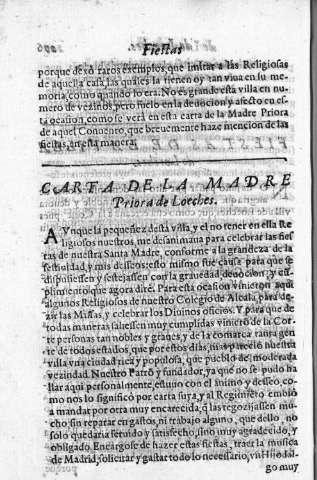 Fiestas
porque dexò raros exemplos, que imitar a las Religiosas
de aquella casa, las quales la tienen oy tan viua en su me-
moria, como quando lo era. No es grande esta villa en nu-
mero de vezinos, pero fuelo en la deuocion y afecto en es-
ta ocasion, como se verà en esta carta de la Madre Priora
de aquel Conuento, que breuemente haze mencion de las
fiestas, en esta manera.
CARTA DE LA MADRE
Priora de Loeches.
AVnque la pequeñez desta villa, y el no tener en ella Re
ligiosos nuestros, me desanimaua para celebrar las fies
tas de nuestra Santa Madre, conforme a la grandeza de la
festiuidad, y mis desseos: esto mismo fue causa para que se
dispusiessen y festejassen con la grauedad, deuocion, y es-
plimento que agora dirè. Para esta ocasion vinieron aqui
algunos Religiosos de nuestro Colegio de Alcala, para de-
zir las Missas, y celebrar los Diuinos oficios. Y para que de
todas maneras saliessen muy cumplidas vinierõ de la Cor-
te personas tan nobles y graues, y de la comarca tanta gen
te de todos estados, que por estos dias, mas pareciò nuestra
villa vna ciudad rica y populosa, que pueblo de moderada
vezindad. Nuestro Patrõ y fundador, ya que no se pudo ha
llar aqui personalmente, estuuo con el animo y desseo, co-
mo nos lo significò por carta suya, y al Regimiento embiò
a mandar por otra muy encarecida, q̃ las regozijassen mu-
cho, sin reparar en gastos, ni trabajo alguno, que dello, no
solo quedaria seruido y satisfecho, sino muy agradecido, y
obligado. Encargose de hazer estas fiestas, traer la musica
de Madrid, solicitar y gastar todo lo necessario, vn Hijodal-
go muy